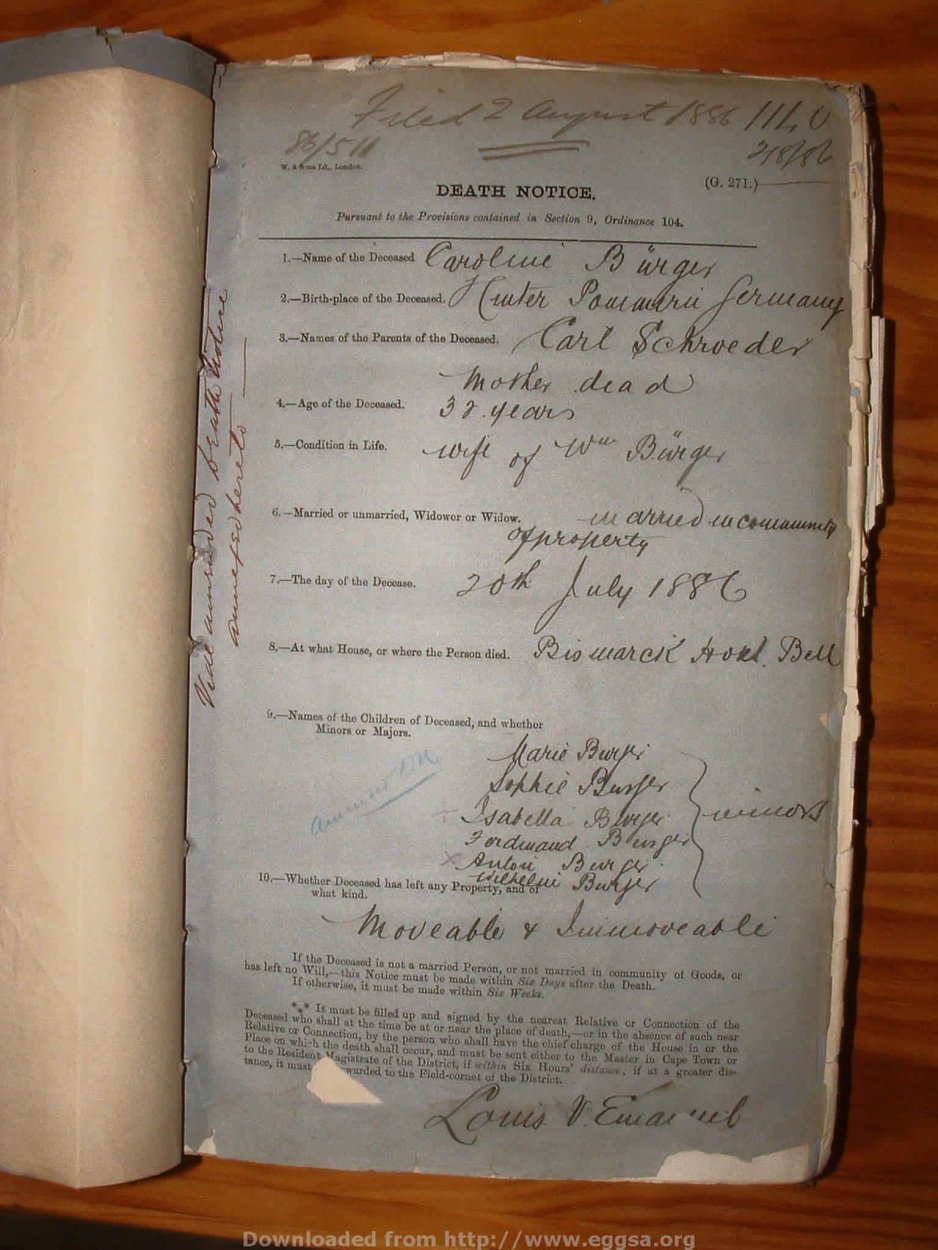 Filed 2 August 1886
86/511
W. & Sons Ld., London.
(G. 271.)
DEATH NOTICE,
Pursuant to the Provisions contained in Section 9, Ordinance 104.
1.—Name of the Deceased Caroline Bürger
2.—Birth-place of the Deceased. Hinter Pommern Germany
3.—Names of the Parents of the Deceased. Carl Schroeder
Mother dead
4.—Age of the Deceased. years
5.—Condition in Life. wife of Wm Bürger
6.—Married or unmarried, Widower or Widow. married in community
of property
7.—The day of the Decease. 20th July 1886
8.—At what House, or where the Person died. Bismarck Hotel. Bell
9.—Names of the Children of Deceased, and whether
Minors or Majors.
Marie Burger
Sophie Burger
Isabella Burger minors
Ferdinand Burger
Anton Burger
Wilhelm Burger
10.—Whether Deceased has left any Property, and of
what kind.
Moveable & Immoveable
If the Deceased is not a married Person, or not married in community of Goods, or
has left no Will,—this Notice must be made within Six Days after the Death.
If otherwise, it must be made within Six Weeks.
*** It must be filled up and signed by the nearest Relative or Connection of the
Deceased who shall at the time be at or near the place of death,—or in the absence of such near
Relative or Connection, by the person who shall have the chief charge of the House in or the
Place on which the death shall occur, and must be sent either to the Master in Cape Town or
to the Resident Magistrate of the District, if within Six Hours' distance; if at a greater dis-
tance, it must warded to the Field-cornet of the District.
Louis V. Emanuel
Vide amended Death Notice
annexed hereto
amended DN
Downloaded from http://www.eggsa.org